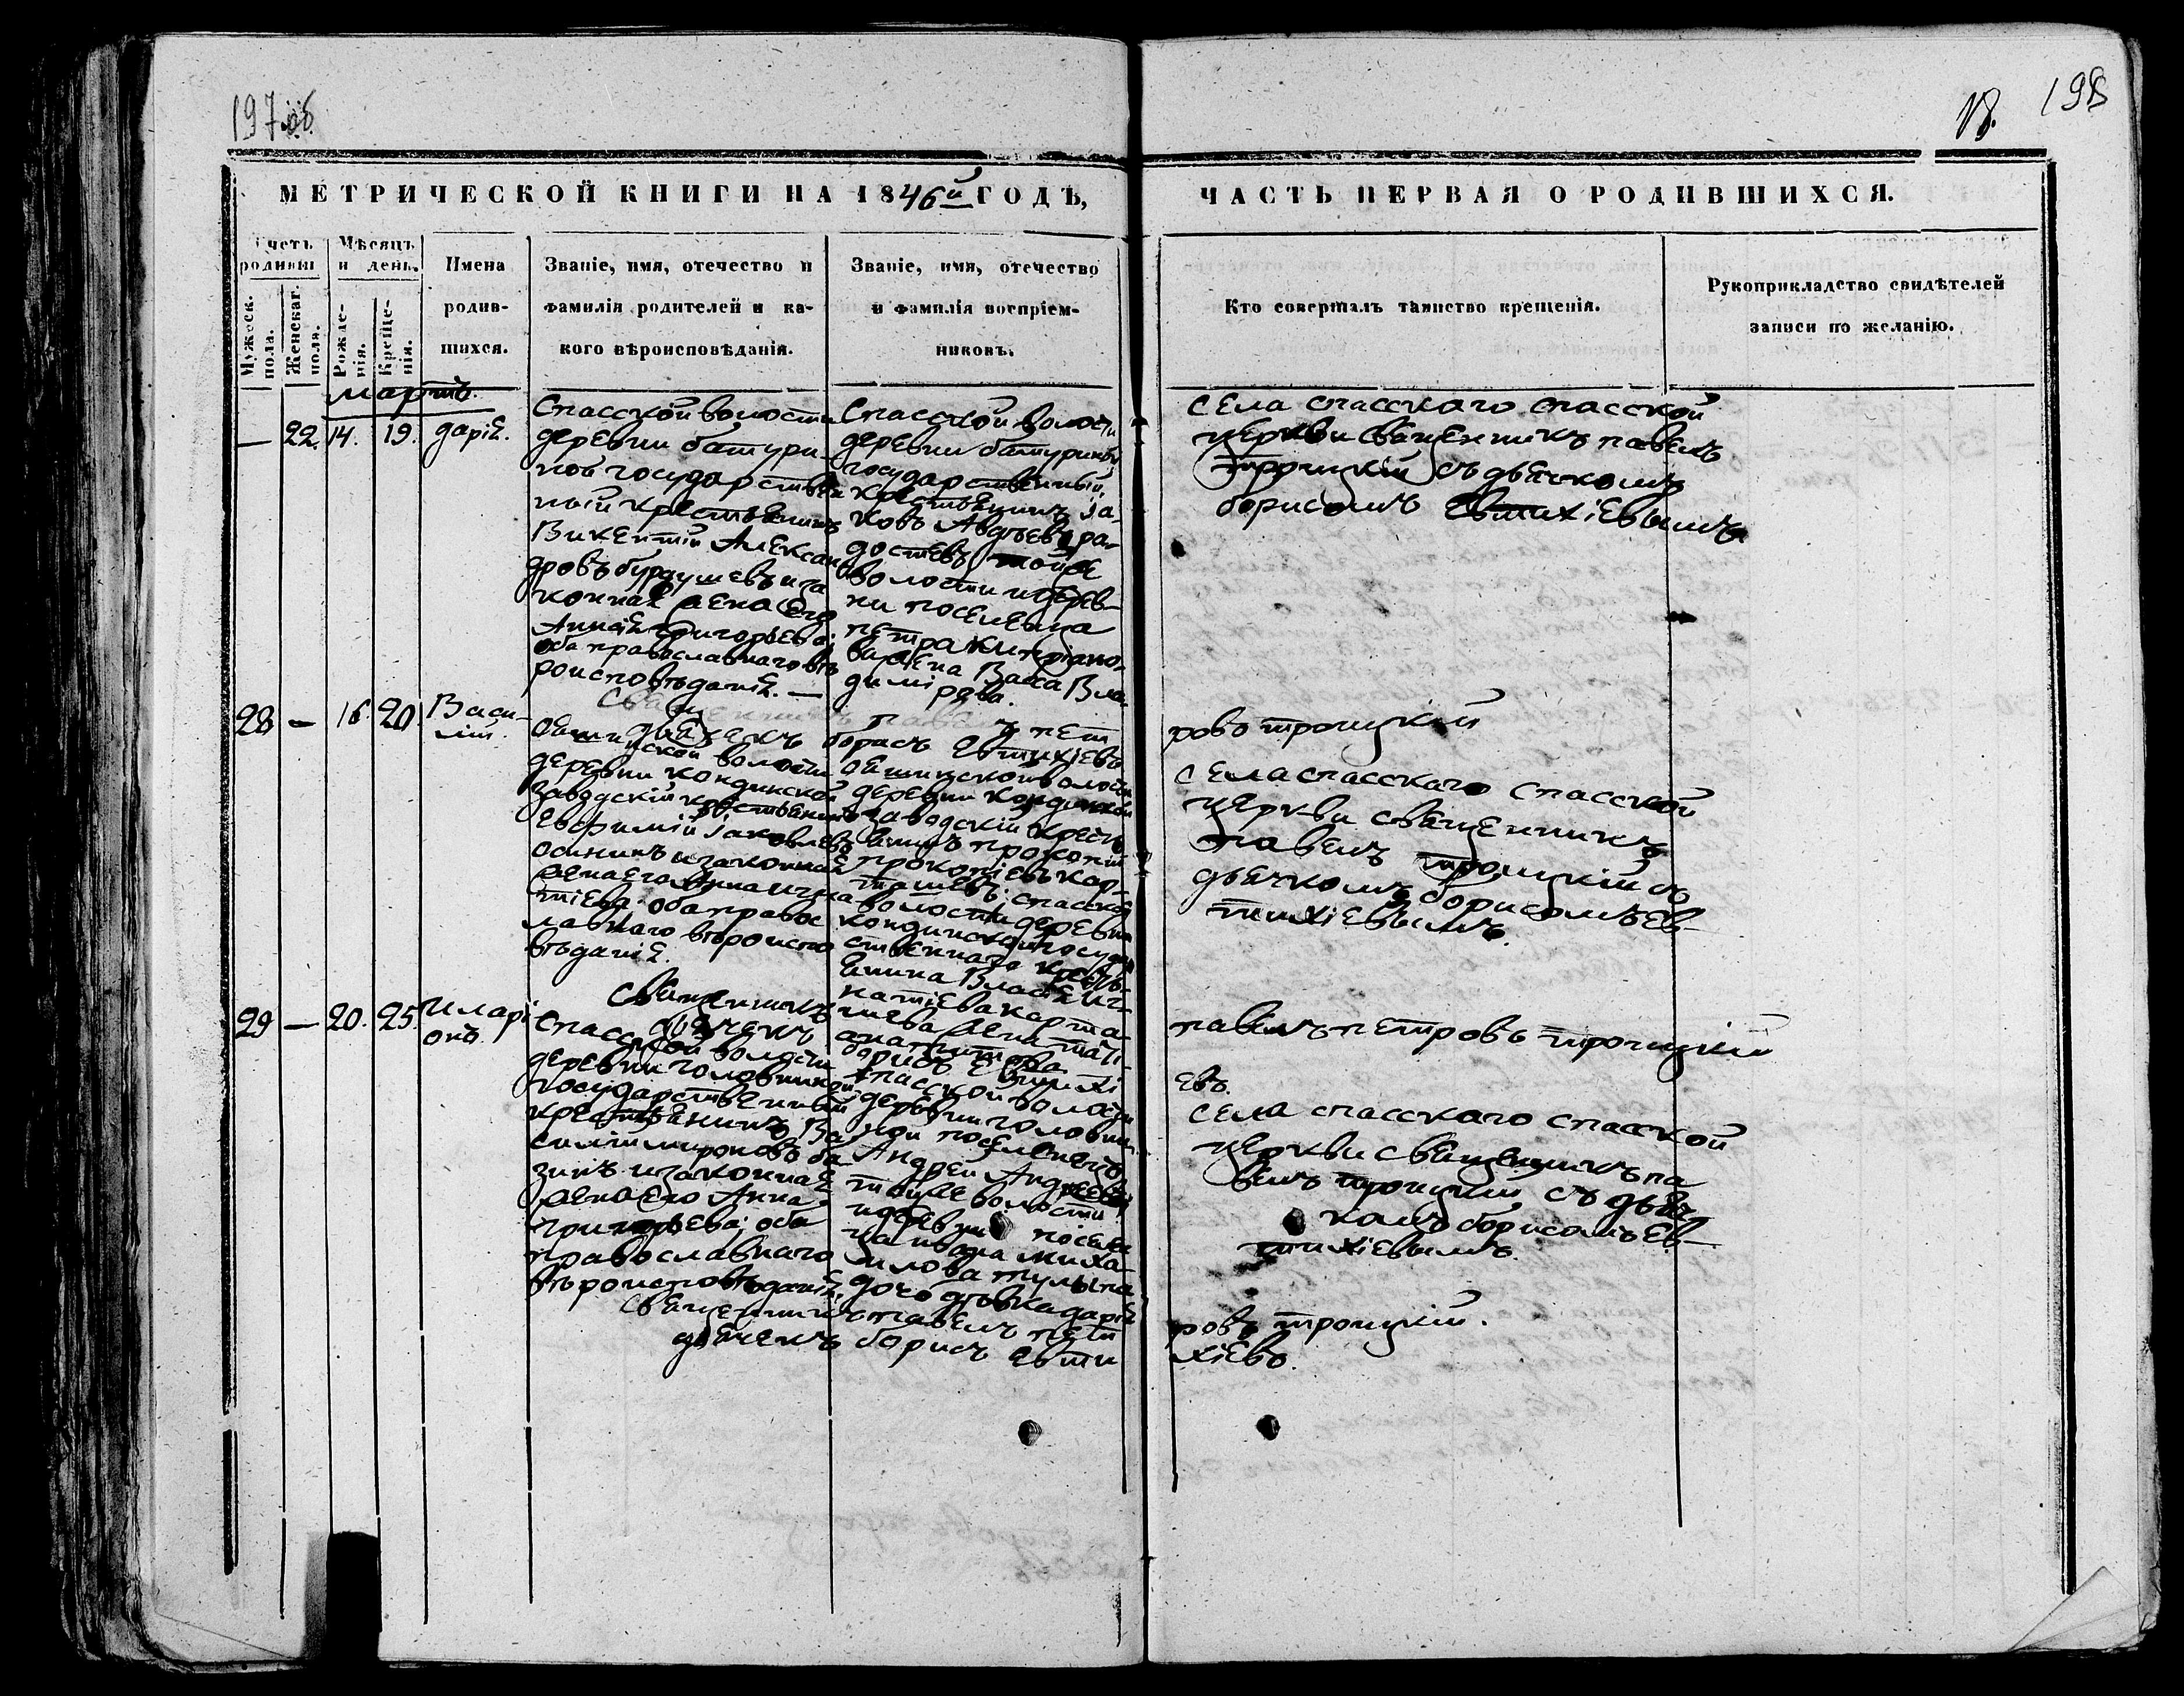 197 об
18. 198
МЕТРИЧЕСКОЙ КНИГИ НА 1846й ГОДЪ,
ЧАСТЬ ПЕРВАЯ О РОДИВШИХСЯ.
Счетъ родивш
Мужеск. пола.
Женскаг. пола.
Мѣсяцъ и день.
Рожде-нія.
Креще-нія.
Имена
родив-
шихся.
Званіе, имя, отечество и
фамилія родителей и ка-
кого вѣроисповѣданія.
Званіе, имя, отечество
и фамилія воспріем-
никовъ.
Кто совершалъ таинство крещенія.
Рукоприкладство свидѣтелей
записи по желанію.
мартъ.
— 22. 14. 19. дарія.
Спасской волости
деревни батури-
ной государствен
ный крестьянинъ
Викентій Алексан
дровъ бурдушевъ и за
конная жена Его
Анна Григорьева;
оба православнаго вѣ
роисповѣданія. —
Спасской волости
деревни батуриной
государственный
крестьянинъ Іа-
ковъ Авдѣевъ ра-
достевъ той же
волости и дерев-
ни поселенца
петра Кипріано-
ва жена Васса Вла-
димірова.
села спасскаго спасской
церкви священникъ павелъ
троицкій съ дьячкомъ
борисомъ Евтихіевымъ
священникъ павелъ пет
ровъ троицкій
дьячекъ борисъ Евтихіевъ
28 — 16. 20. Васи-
лій.
волости
деревни кондинской
заводскій крестьянинъ
Евфимій Іаковлевъ
осининъ и законная
жена его Анна Игна
тіева: оба правос
лавнаго вѣроиспо
вѣданія.
волости
деревни кондинской
заводскій кресть
янинъ прокопій
прокопіевъ кар-
ташевъ; спасской
волости деревни
кондинской государ
ственнаго кресть-
янина Власія Иг-
натіева карта
шева жена тать-
села спасскаго спасской
церкви священникъ
павелъ троицкій съ
дьячкомъ борисомъ Ев-
тихіевымъ.
священникъ
павелъ петровъ троицкій
дьячекъ
борисъ Евтихі
евъ.
29 — 20. 25. Иларі
онъ.
Спасской волости
деревни головиной
государственный
крестьянинъ Ва
силій мироновъ ба
зинъ и законная
жена Его Анна
григорьева; оба
православнаго
вѣроисповѣданія,
спасской волости
деревни голови
ной поселенецъ
Андрей Андреевъ
той же волости
и деревни поселен
ца ивана миха-
илова
дочь дѣвка дарія
села спасскаго спасской
церкви священникъ па
велъ троицкій съ дьяч
комъ борисомъ Ев-
тихіевымъ.
священникъ павелъ пет
ровъ троицкій.
дьячекъ борисъ Евти
хіевъ.